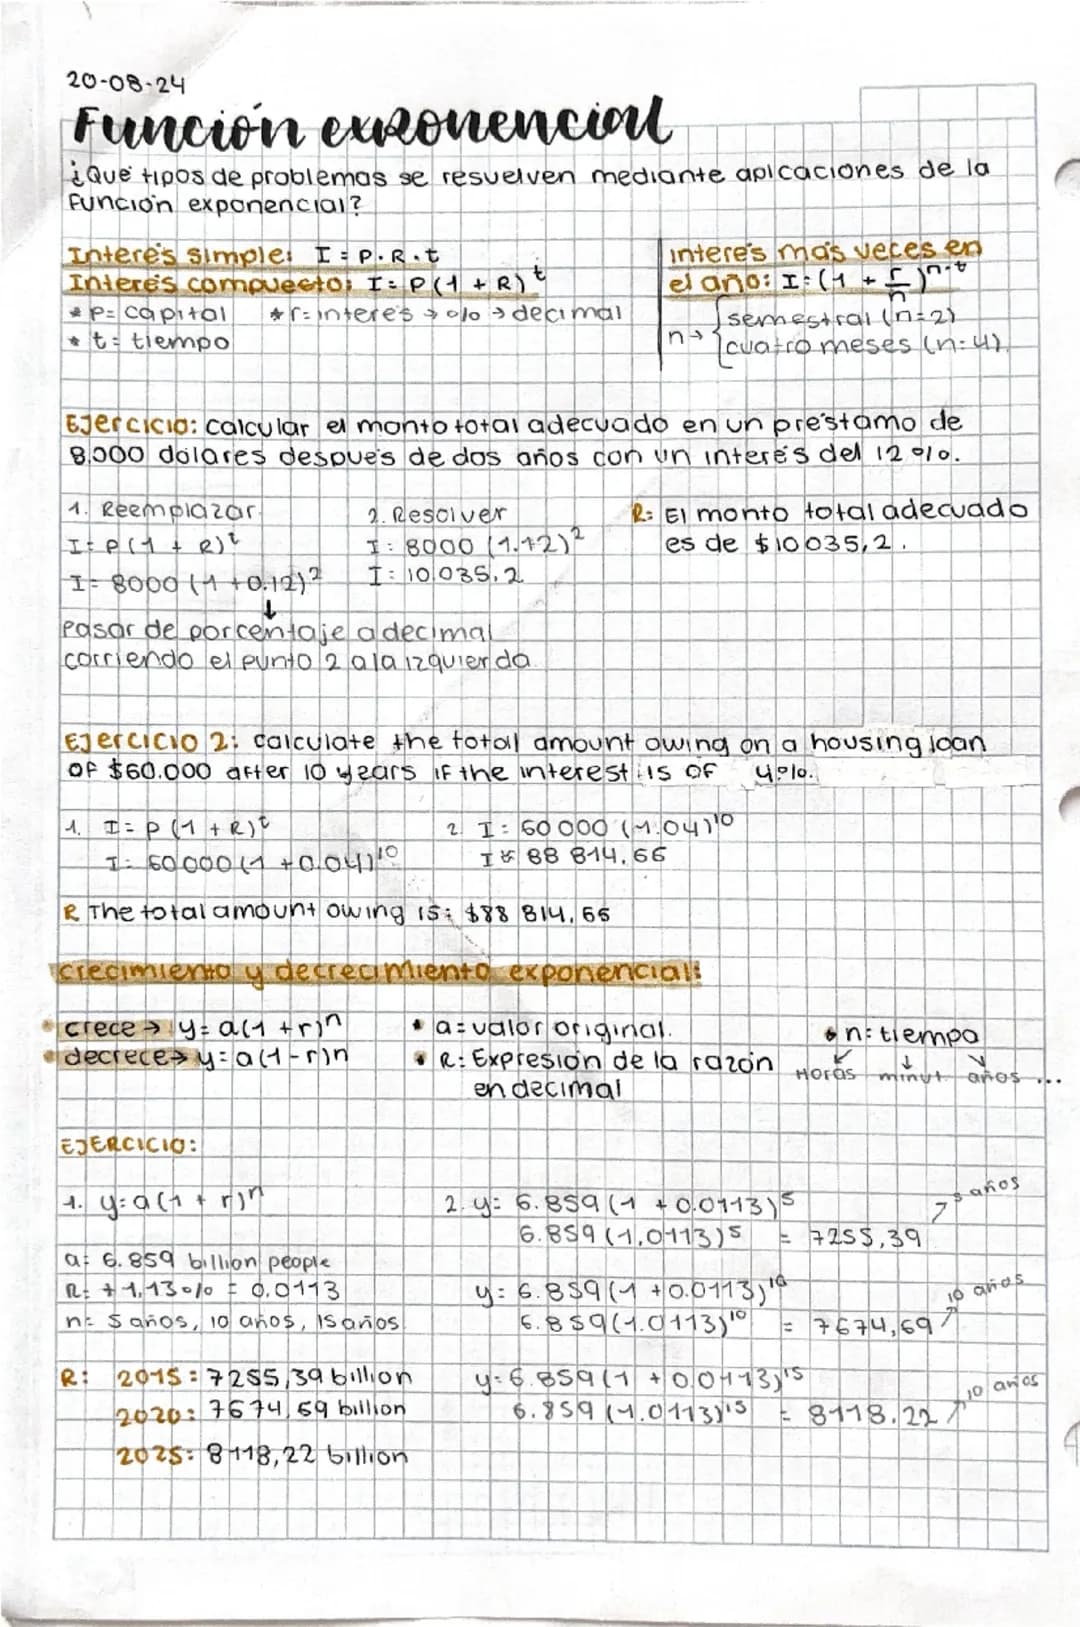 20-08-24
Función exponencial
¿Qué tipos de problemas se resuelven mediante aplcaciones de la
función exponencial?
Interés simple: I = P·R·t
Interés compuesto: I = P(1 + R)^t
* P = capital * r = interés → % → decimal
* t = tiempo
interés más veces en
el año: I: (1 + r/n)^n·t
n → { semestral (n=2)
cuatro meses (n:4)
Ejercicio: calcular el monto total adecuado en un préstamo de
8,000 dolares después de dos años con un interés del 12%.
1. Reemplazar
I = P(1 + R)^t
I = 8000 (1 + 0.12)^2
↓
Pasar de porcentaje a decimal
corriendo el punto 2 a la izquierda
2. Resolver
I: 8000 (1.12)^2
I: 10.035,2
R: El monto total adecuado
es de $10035,2.
Ejercicio 2: calculate the total amount owing on a housing loan
of $60.000 after 10 years if the interest is of 4%.
1. I = P(1 + R)^t
I: 60000 (1 + 0.04)^10
2. I: 60 000 (1.04)^10
I = 88 814,66
R The total amount owing is: $88 814,66
crecimiento y decrecimiento exponencial:
• crece → y = a(1 + r)^n
• decrece → y = a(1-r)n
• a = valor original.
• R: Expresión de la razón
en decimal
• n: tiempo
Horas minut años ...
EJERCICIO:
1. y: a(1 + r)^n
a: 6.859 billion people
R: + 1,13% = 0,0113
n = 5 años, 10 años, 15 años
R: 2015: 7255,39 billion
2020: 7674,69 billion
2025: 8118,22 billion
2. y: 6.859 (1 + 0.0113)^5
6.859 (1,0113)^5 = 7255,39 ↗ 5 años
y: 6.859 (1 + 0.0113)^10
6.859 (1.0113)^10 = 7674,69 ↗ 10 años
y: 6.859 (1 + 0.0113)^15
6.859 (1.0113)^15 = 8118.22 ↗ 10 años